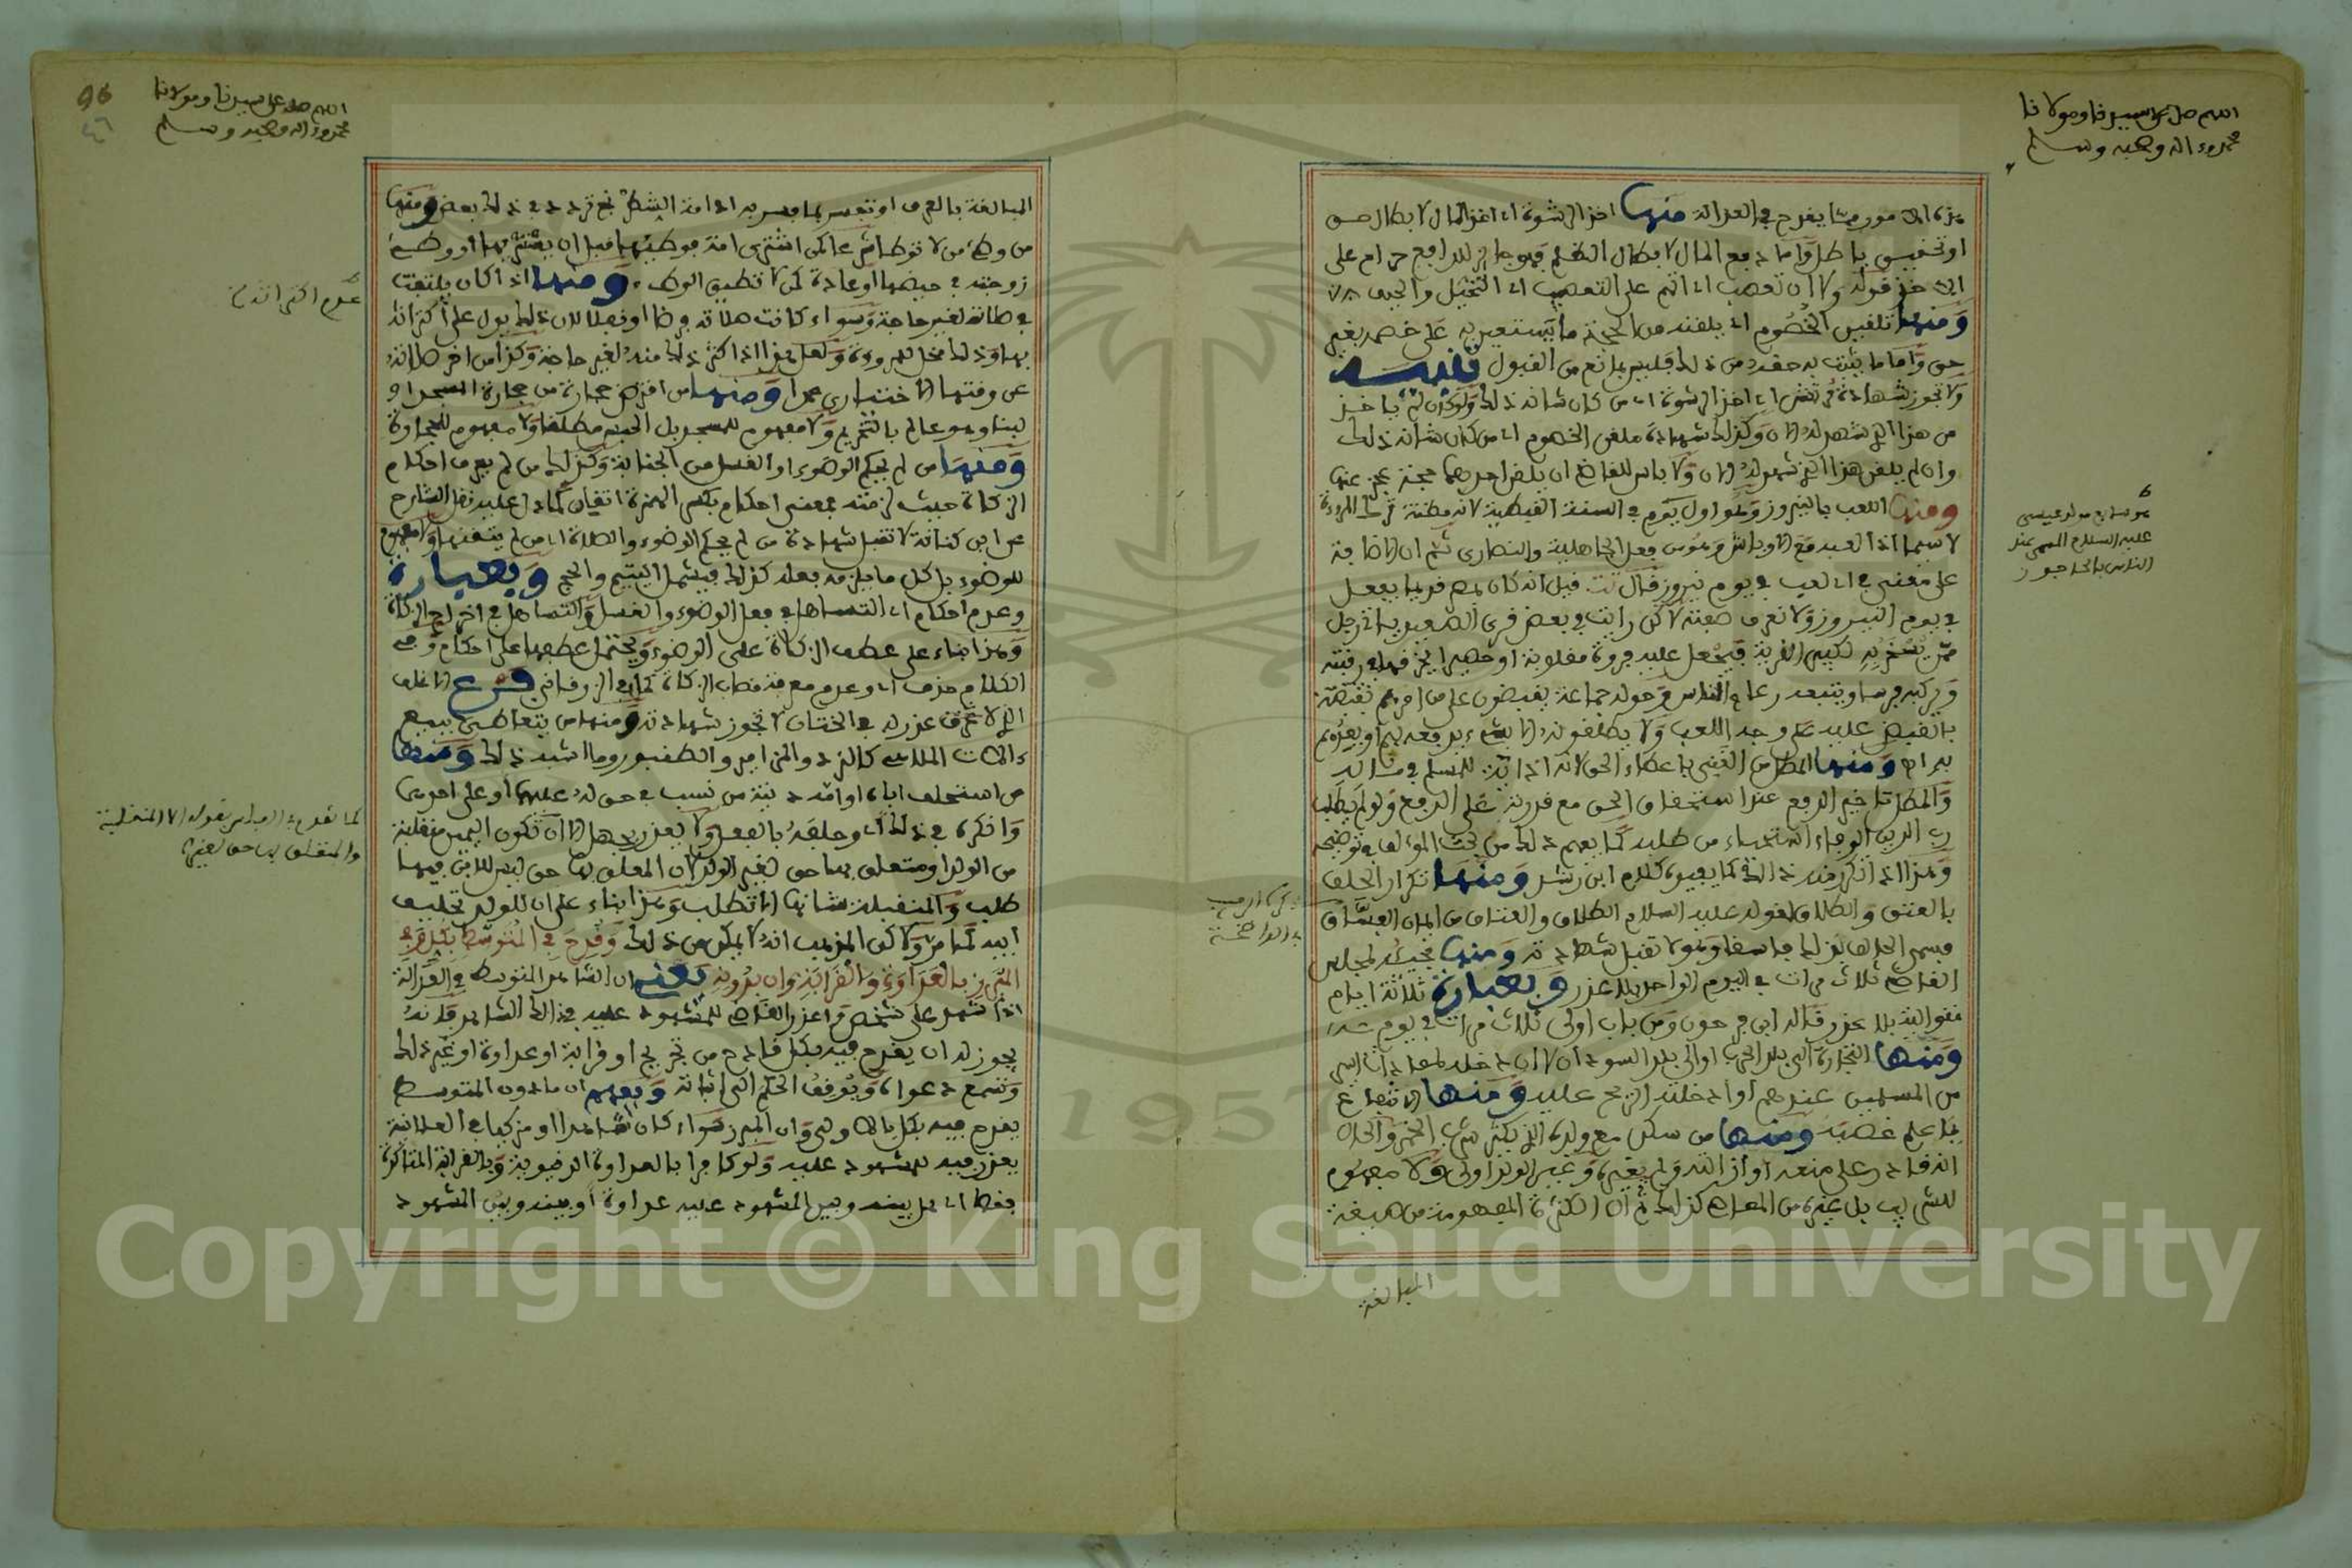 اللهم صل على سيدنا ومولانا
محمد وءاله وصحبه وسلم
هذه الامور مما يقدح في العدالة منها اخذ الرشوة اي اخذ المال لابطال حق
او تحقيق باطل واما دفع المال لابطال الظلم فهو جائز للدافع حرام على
الاخذ قوله ولا ان تعصب اي اتهم على التعصب اي التحيل والحيف
ومنها تلقين الخصوم اي يلقنه من الحجة ما يستعين به على خصمه بغير
حق واما ما يثبت به حقه من ذلك فليس بمانع من القبول تنبيه
ولا تجوز شهادة مرتش اي اخذ الرشوة اي من كان شانه ذلك ولو كان لم ياخذ
من هذا الذي شهد له الان وكذلك شهادة ملقن الخصوم اي من كان شانه ذلك
وان لم يلقن هذا الذي شهد له الان ولا باس للقاضي ان يلقن احدهما حجة عجز عنها
ومنها اللعب بالنيروز وهو اول يوم في السنة القبطية لانه مظنة ترك المروءة
لاسيما اذا لعبه مع الاوباش وهو من فعل الجاهلية والنصارى ثم ان الاضافة
على معنى في اي لعب في يوم نيروز قال تت قيل انه كان بمصر قديما يفعل
في يوم النيروز ولا نعرف صفته لاكن رايت في بعض قرى الصعيد ياتي رجل
ممن يسخر به لكبير القرية فيجعل عليه فروة مقلوبة او حصيرا يخرقها في رقبته
ويركبه فرسا ويتبعه رعاع الناس وحوله جماعة يقبضون على من امرهم بقبضه
بالقبض عليه على وجه اللعب ولا يطلقونه الا بشيء يدفعه لهم او يعدهم
به اهـ ومنها المطل من الغني باعطاء الحق لانه اذاية للمسلم في ماله
والمطل تاخير الدفع عند استحقاق الحق مع قدرته على الدفع ولو لم يطلبه
رب الدين الوفاء استحياء من طلبه كما يفهم ذلك من بحث المؤلف في توضيحه
وهذا اذا تكرر منه ذلك كما يفيده كلام ابن رشد ومنها تكرار الحلف
بالعتق والطلاق لقوله عليه السلام الطلاق والعتاق من ايمان الفساق
فسمى الحالف بذلك فاسقا وهو لا تقبل شهادته ومنها مجيئه لمجلس
القاضي ثلاث مرات في اليوم الواحد بلا عذر وبعبارة ثلاثة ايام
متوالية بلا عذر قاله ابن فرحون ومن باب اولى ثلاث مرات في يوم
ومنها التجارة الى بلد الحرب او الى بلد السودان لا ان دخله لمفاداة اسير
من المسلمين عندهم او ادخلته الريح عليه ومنها الانتفاع
بما علم غصبه ومنها من سكن مع ولده الذي يكثر شرب الخمر والحال
انه قادر على منعه او ازالته ولم يغيره وغير الولد اولى ولا مفهوم
للشرب بل غيره من المعاصي كذلك ثم ان الكثرة المفهومة من صيغة
المبالغة
هو سابع مولد عيسى
عليه السلام المسمى عند
اللهم صل على سيدنا ومولانا
محمد وءاله وصحبه وسلم
96
٤٦
المبالغة بالعرف او تفسر بما فسر به ادامة الشطرنج تردد في ذلك بعض ومنها
من وطئ من لا توطا شرعا كمن اشترى امة فوطئها قبل ان يستبرئها او وطئ
زوجته في حيضها او عادة كمن لا تطيق الوطء ومنها اذا كان يلتفت
في صلاته لغير حاجة وسواء كانت صلاته فرضا او نفلا لان ذلك يدل على اكتراثه
بها وذلك مخل بالمروءة ولعل هذا اذا كثر ذلك منه لغير حاجة وكذا من اخر صلاته
عن وقتها الاختياري عمدا ومنها من اقترض حجارة من حجارة المسجد او
لبنا وهو عالم بالتحريم ولا مفهوم للمسجد بل الحبس مطلقا ولا مفهوم للحجارة
ومنها من لم يحكم الوضوء او الغسل من الجنابة وكذلك من لم يعرف احكام
الزكاة حيث لزمته بمعنى احكام بكسر الهمزة اتقان كما دل عليه نقل الشارح
عن ابن كنانة لا تقبل شهادة من لم يحكم الوضوء والصلاة اي من لم يتقنها ولا مفهوم
للوضوء بل كل ما يلزمه فعله كذلك فيشمل التيمم والحج وبعبارة
وعدم احكام اي التساهل في فعل الوضوء والغسل والتساهل في اخراج الزكاة
وهذا بناء على عطف الزكاة على الوضوء ويحتمل عطفها على احكام وفي
الكلام حذف اي وعدم معرفة نصاب الزكاة كما في الزرقاني فرع الاغلف
الذي لا عذر له في الختان لا تجوز شهادته ومنها من يتعاطى بيع
ءالات الملاهي كالنرد والمزامير والطنبور وما اشبه ذلك ومنها
من استحلف اباه او امه دنية من نسب في حق له عليهما او على احدهما
وانكره في ذلك اي وحلفه بالفعل ولا يعذر بجهل الا ان تكون اليمين منقلبة
من الولد او متعلق بها حق لغير الولد لان المعلق بها حق ليس للابن فيها
طلب والمنقلبة شانها لا تطلب وهذا بناء على ان للولد تحليف
ابيه كما مر ولاكن المذهب انه لا يمكن من ذلك وقدح في المتوسط بكل وفي
المبرز بالعداوة والقرابة وان بدونه يعني ان الشاهد المتوسط في العدالة
اذا شهد على شخص واعذر القاضي للمشهود عليه في ذلك الشاهد فانه
يجوز له ان يقدح فيه بكل قادح من تجريح او قرابة او عداوة او غير ذلك
وتسمع دعواه ويوقف الحكم الى اثباته وفهم ان ما دون المتوسط
يقدح فيه بكل بالاولى وان المبرز سواء كان شاهدا او مزكيا في العلانية
يعذر فيه للمشهود عليه ولو كافرا بالعداوة الدنيوية وبالقرابة المتاكدة
فقط اي بل بينه وبين المشهود عليه عداوة او بينه وبين المشهود
Copyright © King Saud University
1957